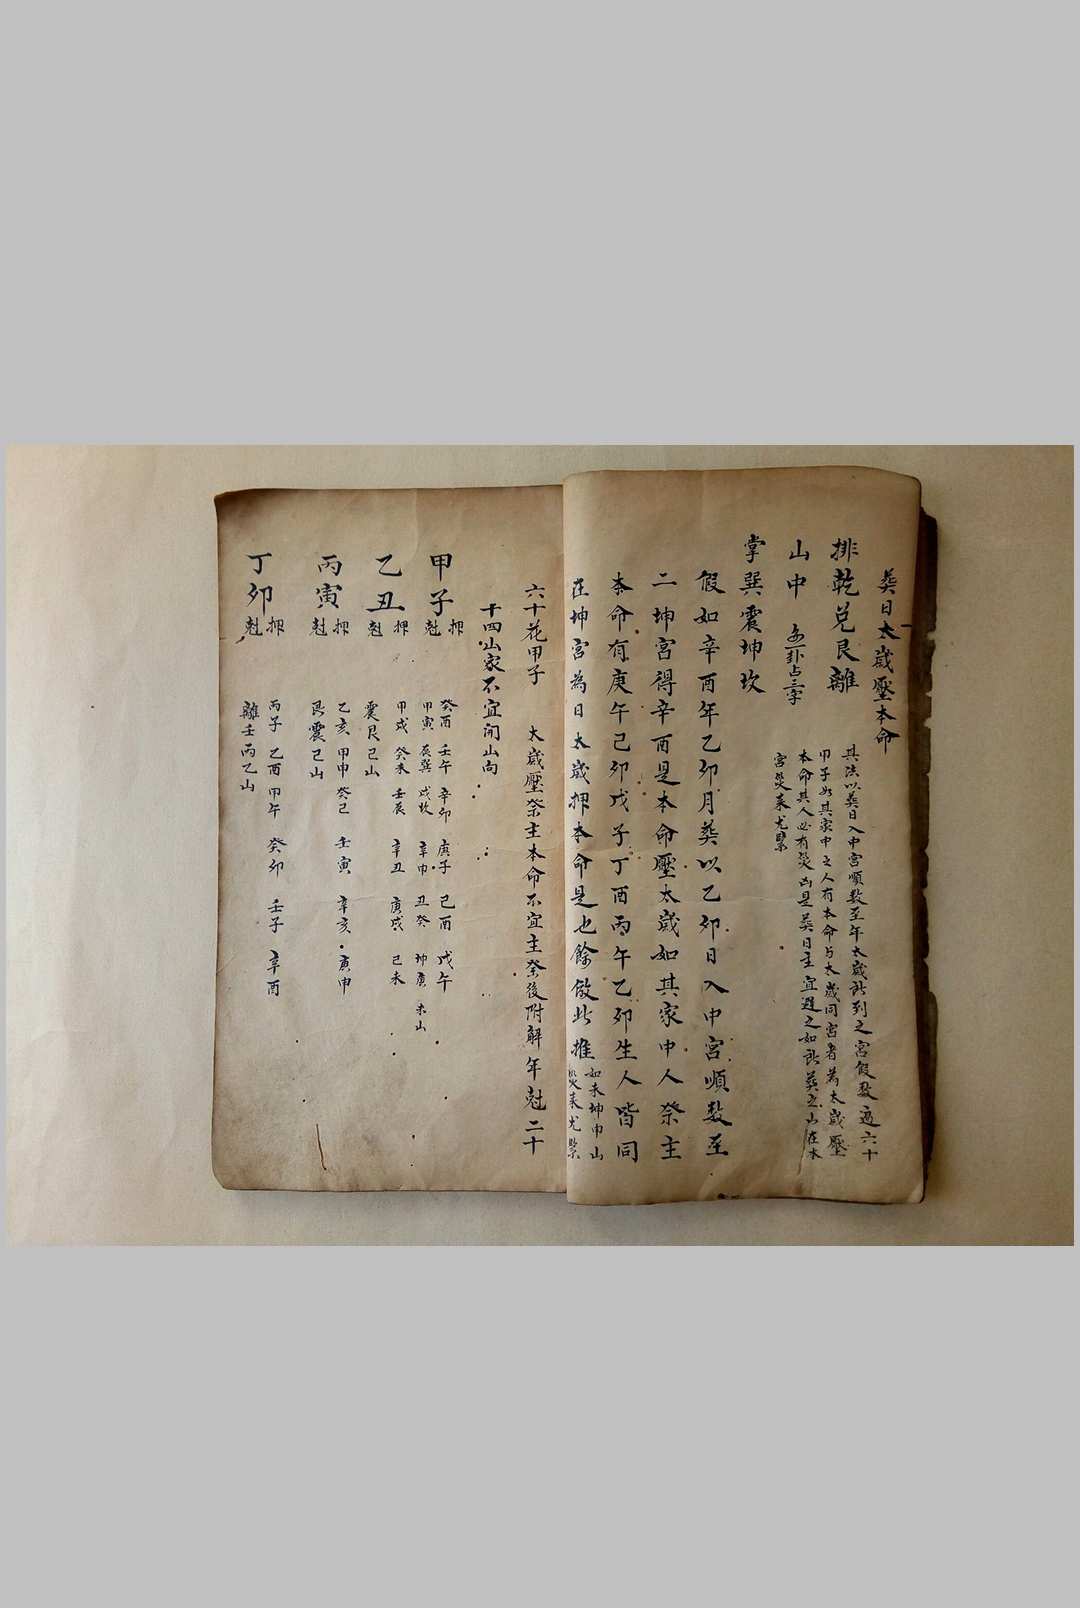 葬日太歲壓本命
排乾兌艮離 其法以葬日入中宮順数至年太歲訴到之宮假数過六十
甲子如其家中之人有本命与太歲同宮者為太歲壓
山中 每一卦占三字 本命其人必有災凶是葬日主宜避之如訴葬之山在本
宮災来尤緊
掌巽震坤坎
假如辛酉年乙卯月葬以乙卯日入中宮順数至
二坤宮得辛酉是本命壓太歲如其家中人祭主
本命有庚午己卯戊子丁酉丙午乙卯生人皆同
在坤宮為日太歲押本命是也餘倣此推 如未坤申山
災来尤緊
六十花甲子 太歲壓祭主本命不宜主祭後附解年尅二十
十四山家不宜開山向
甲子 押尅 癸酉 壬午 辛卯 庚子 己酉 戊午
甲寅 辰巽 戌坎 辛申 丑癸 坤庚 未山
乙丑 押尅 甲戌 癸未 壬辰 辛丑 庚戌 己未
震艮己山
丙寅 押尅 乙亥 甲申 癸己 壬寅 辛亥 庚申
艮震己山
丁卯 押尅 丙子 乙酉 甲午 癸卯 壬子 辛酉
離壬丙乙山